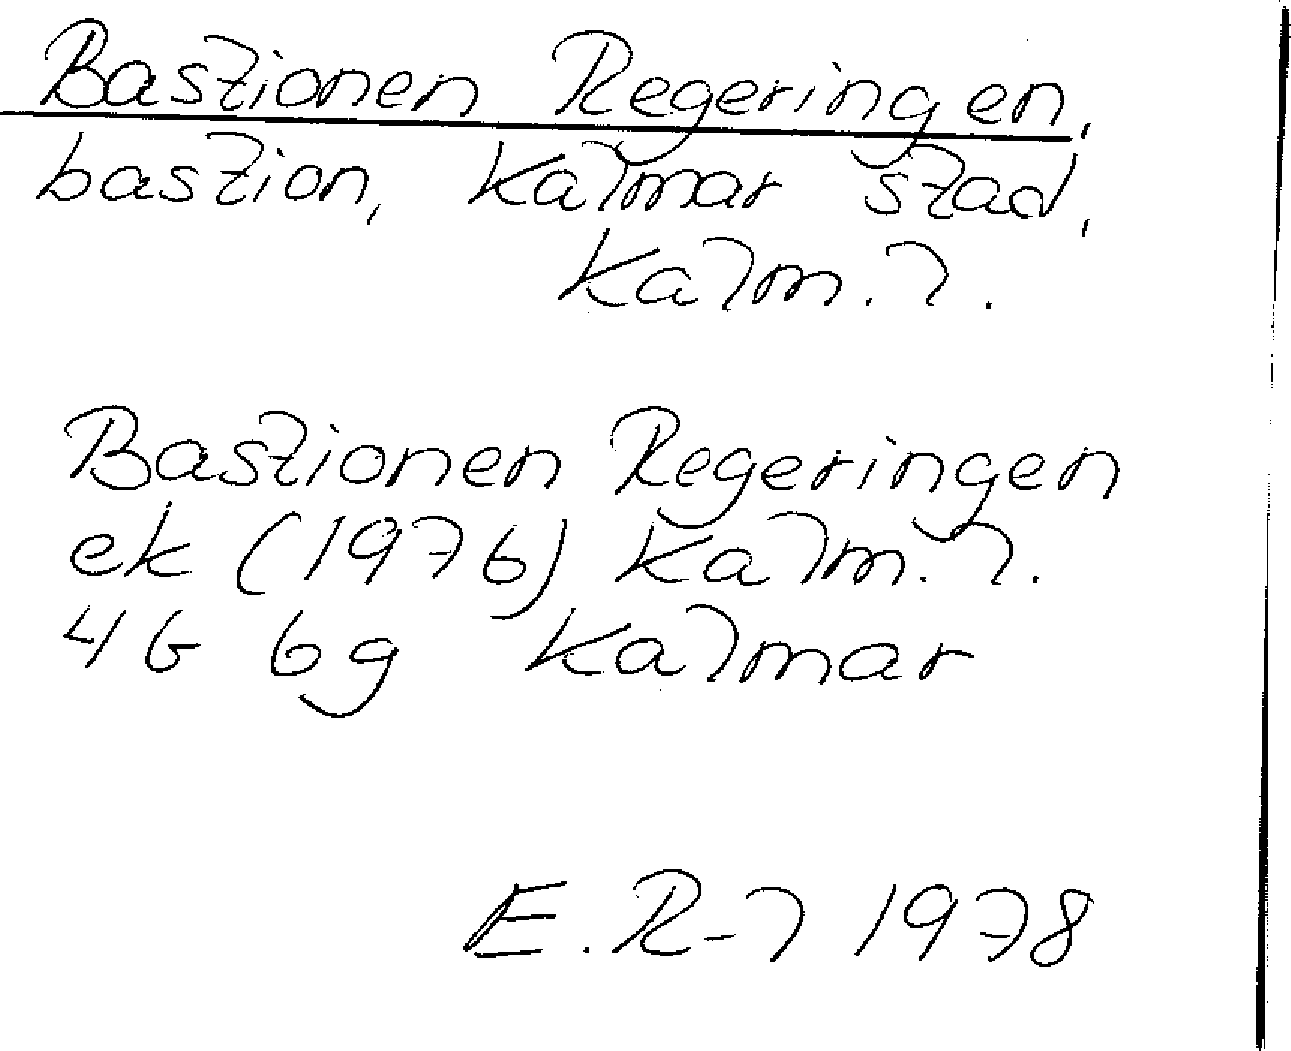 Bastionen Regeringen,
bastion, Kalmar stad,
Kalm. l.
Bastionen Regeringen
ek (1976) Kalm. l.
4G 6g Kalmar
E. R-l 1978